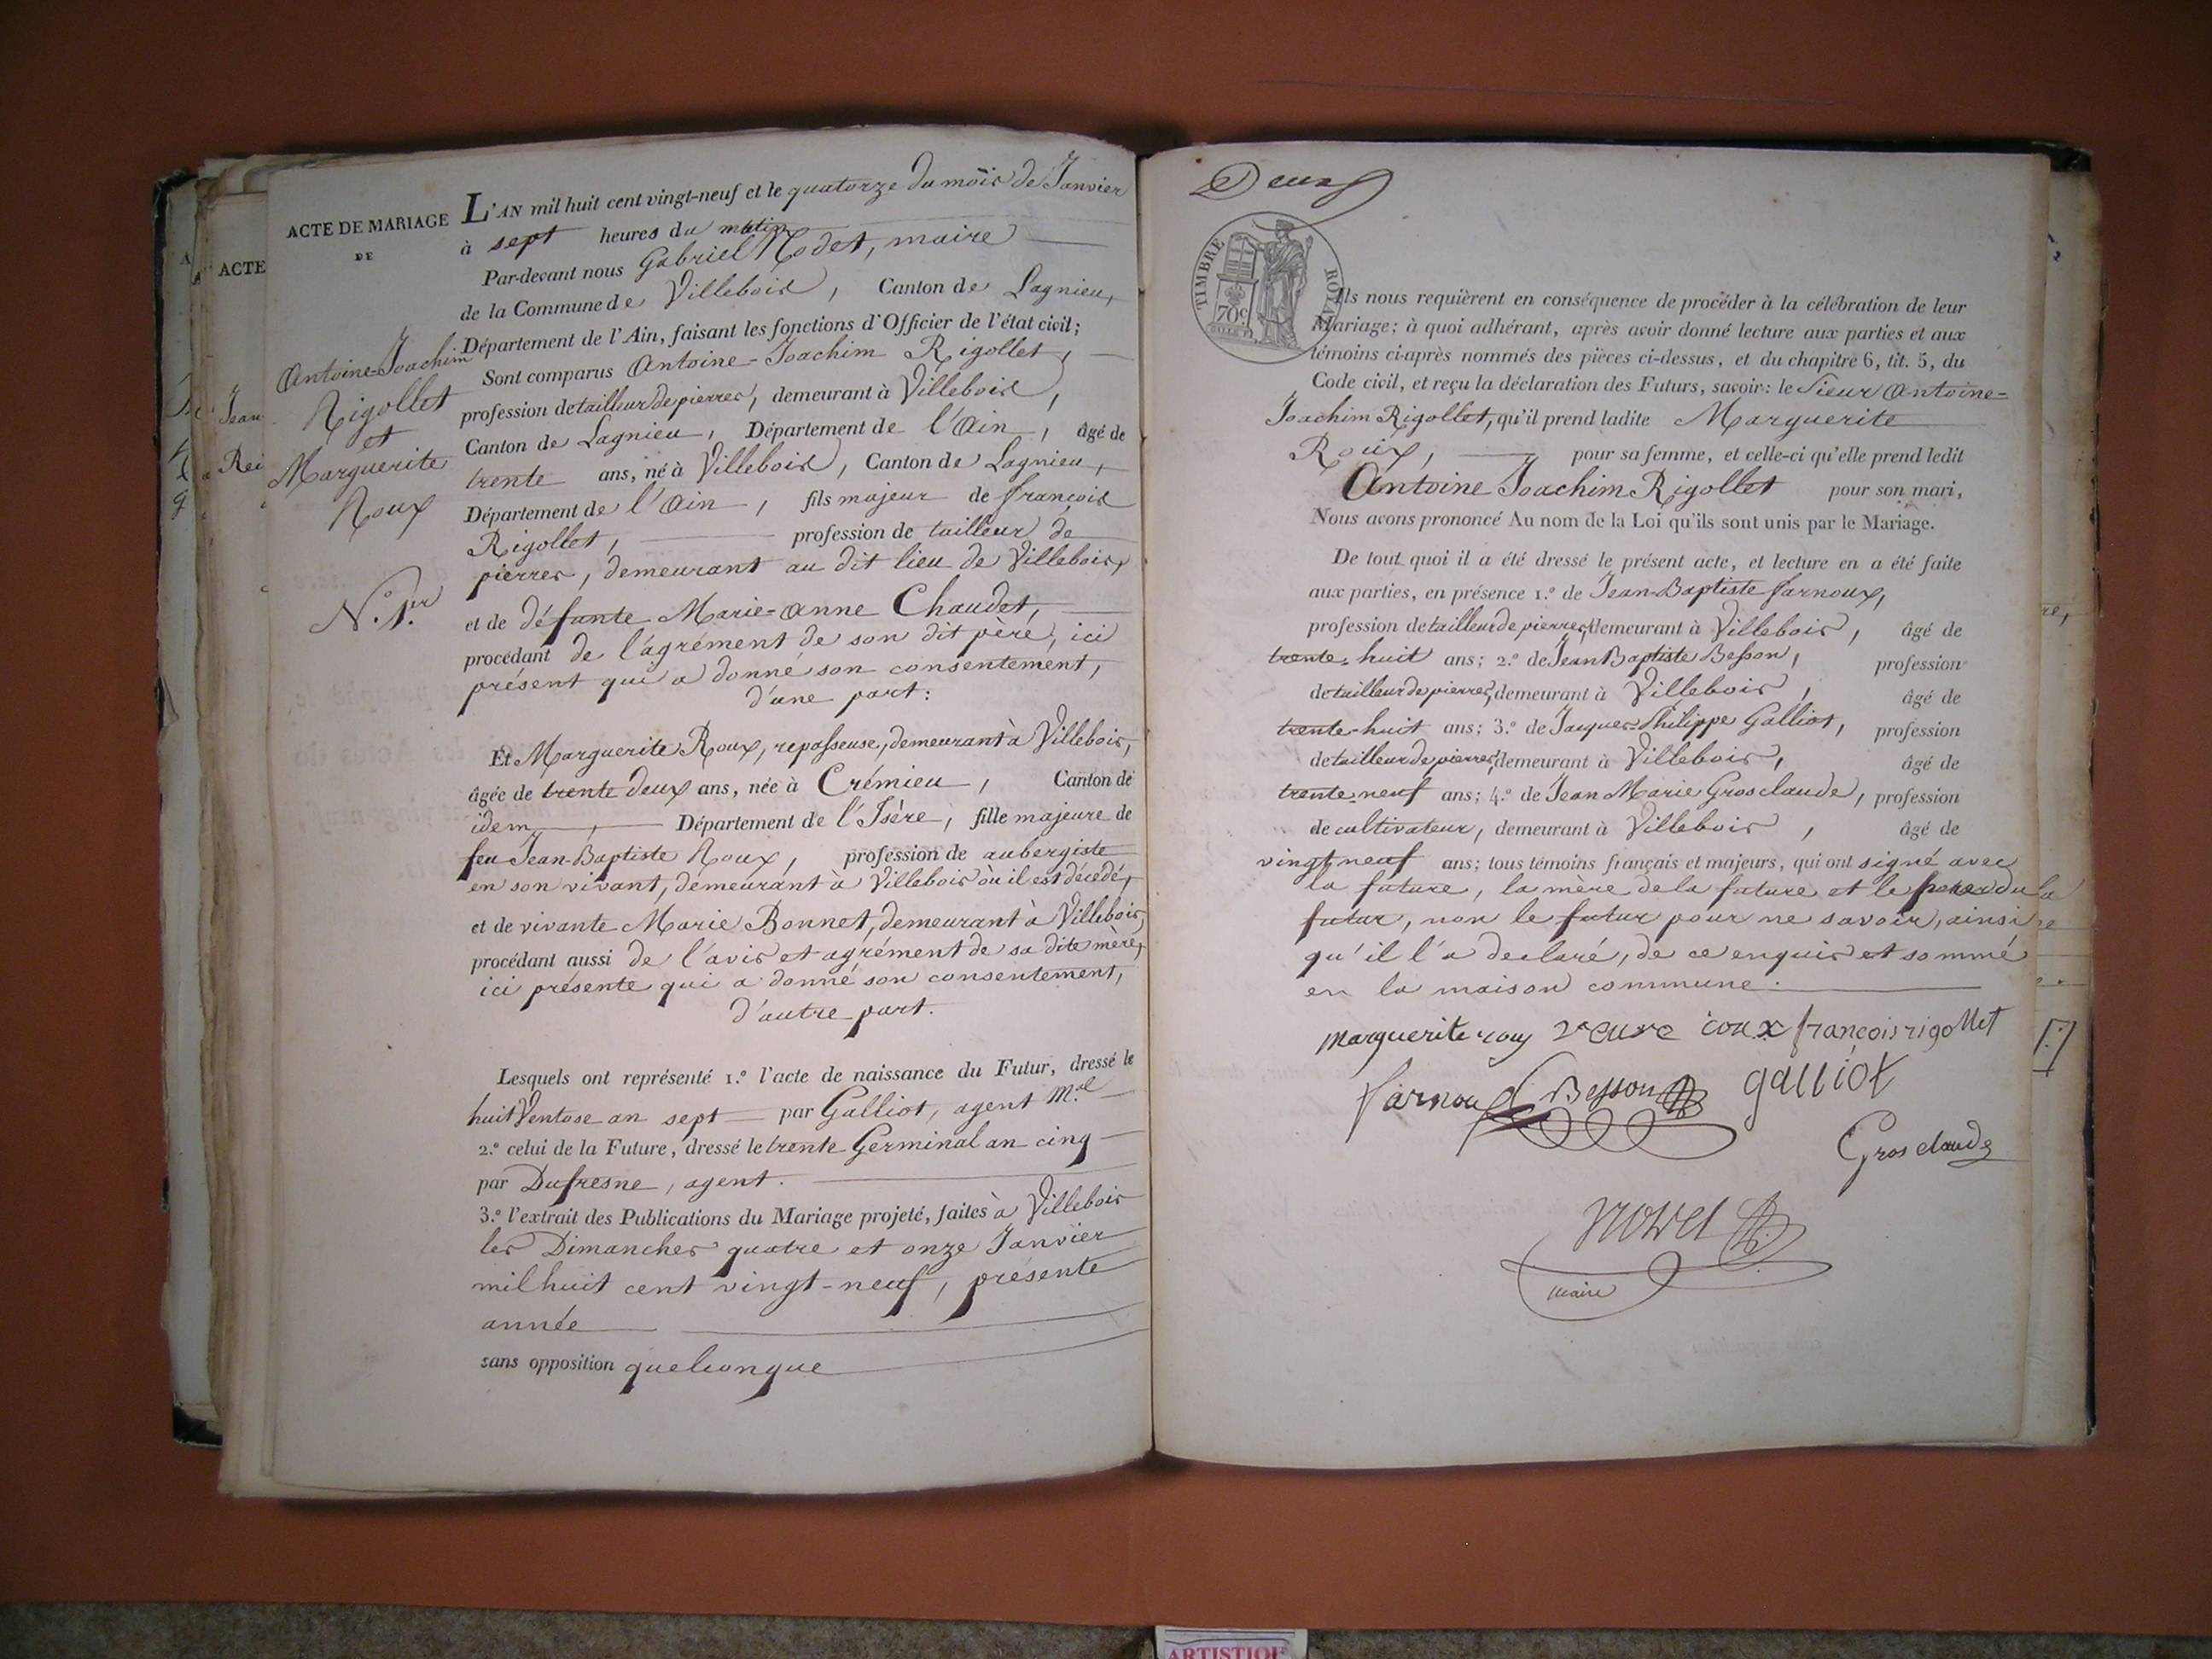 ACTE DE MARIAGE
DE
Antoine-Joachim
Rigollet
et
Marguerite
Roux
N.º 1.er
L'AN mil huit cent vingt-neuf et le quatorze du mois de Janvier
à sept heures du matin
Par-devant nous Gabriel Nodet, maire
de la Commune de Villebois, Canton de Lagnieu,
Département de l'Ain, faisant les fonctions d'Officier de l'état civil;
Sont comparus Antoine-Joachim Rigollet,
profession de tailleur de pierres, demeurant à Villebois,
Canton de Lagnieu, Département de l'Ain, âgé de
trente ans, né à Villebois, Canton de Lagnieu,
Département de l'Ain, fils majeur de françois
Rigollet, profession de tailleur de
pierres, demeurant au dit lieu de Villebois,
et de défunte Marie-Anne Chaudet,
procédant de l'agrément de son dit père, ici
présent qui a donné son consentement,
d'une part:
Et Marguerite Roux, repasseuse, demeurant à Villebois,
âgée de trente deux ans, née à Crémieu, Canton de
idem, Département de l'Isère, fille majeure de
feu Jean-Baptiste Roux, profession de aubergiste
en son vivant, demeurant à Villebois où il est décédé,
et de vivante Marie Bonnet, demeurant à Villebois,
procédant aussi de l'avis et agrément de sa dite mère,
ici présente qui a donné son consentement,
d'autre part.
Lesquels ont représenté 1.º l'acte de naissance du Futur, dressé le
huit Ventose an sept par Galliot, agent M.al
2.º celui de la Future, dressé le trente Germinal an cinq
par Dufresne, agent.
3.º l'extrait des Publications du Mariage projeté, faites à Villebois
les Dimanches quatre et onze Janvier
mil huit cent vingt-neuf, présente
année
sans opposition quelconque
ACTE
Jean
Rei
Deux
TIMBRE ROYAL
70c
Ils nous requièrent en conséquence de procéder à la célébration de leur
Mariage; à quoi adhérant, après avoir donné lecture aux parties et aux
témoins ci-après nommés des pièces ci-dessus, et du chapitre 6, tit. 5, du
Code civil, et reçu la déclaration des Futurs, savoir: le Sieur Antoine-
Joachim Rigollet, qu'il prend ladite Marguerite
Roux, pour sa femme, et celle-ci qu'elle prend ledit
Antoine Joachim Rigollet pour son mari,
Nous avons prononcé Au nom de la Loi qu'ils sont unis par le Mariage.
De tout quoi il a été dressé le présent acte, et lecture en a été faite
aux parties, en présence 1.º de Jean-Baptiste farnoux,
profession de tailleur de pierres, demeurant à Villebois, âgé de
trente-huit ans; 2.º de Jean Baptiste Besson, profession
de tailleur de pierres, demeurant à Villebois, âgé de
trente-huit ans; 3.º de Jacques-Philippe Galliot, profession
de tailleur de pierres, demeurant à Villebois, âgé de
trente-neuf ans; 4.º de Jean Marie Grosclaude, profession
de cultivateur, demeurant à Villebois, âgé de
vingt neuf ans; tous témoins français et majeurs, qui ont signé avec
la future, la mère de la future et le pere du
futur, non le futur pour ne savoir, ainsi
qu'il l'a declaré, de ce enquis et sommé
en la maison commune.
marguerite roux veuve roux françois rigollet
farnoux Besson galliot
Gros claude
maire
ARTISTIQUE